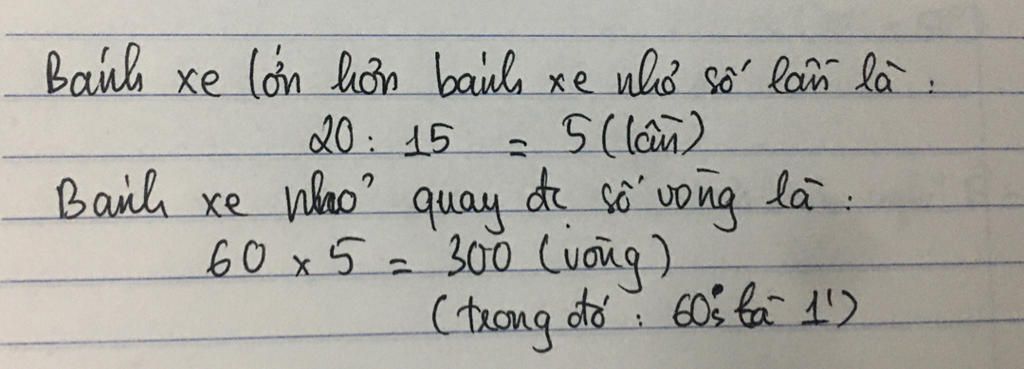 Bánh xe lớn hơn bánh xe nhỏ số lần là :
20 : 15 = 5 (lần)
Bánh xe nhỏ quay đc số vòng là :
60 x 5 = 300 (vòng)
(trong đó : 60s là 1')